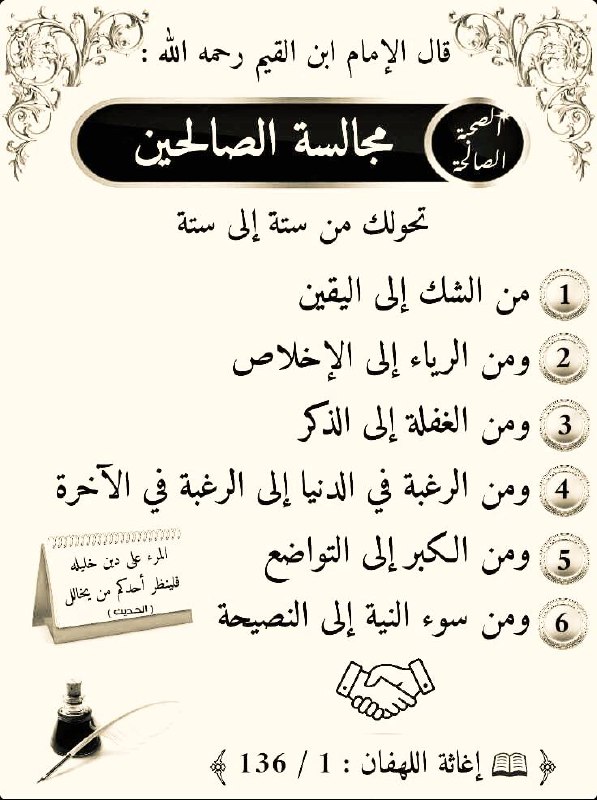 قال الإمام ابن القيم رحمه الله :
الصحبة
الصالحة
مجالسة الصالحين
تحولك من ستة إلى ستة
1 من الشك إلى اليقين
2 ومن الرياء إلى الإخلاص
3 ومن الغفلة إلى الذكر
4 ومن الرغبة في الدنيا إلى الرغبة في الآخرة
5 ومن الكبر إلى التواضع
6 ومن سوء النية إلى النصيحة
المرء على دين خليله
فلينظر أحدكم من يخالل
(الحديث)
إغاثة اللهفان : 1 / 136